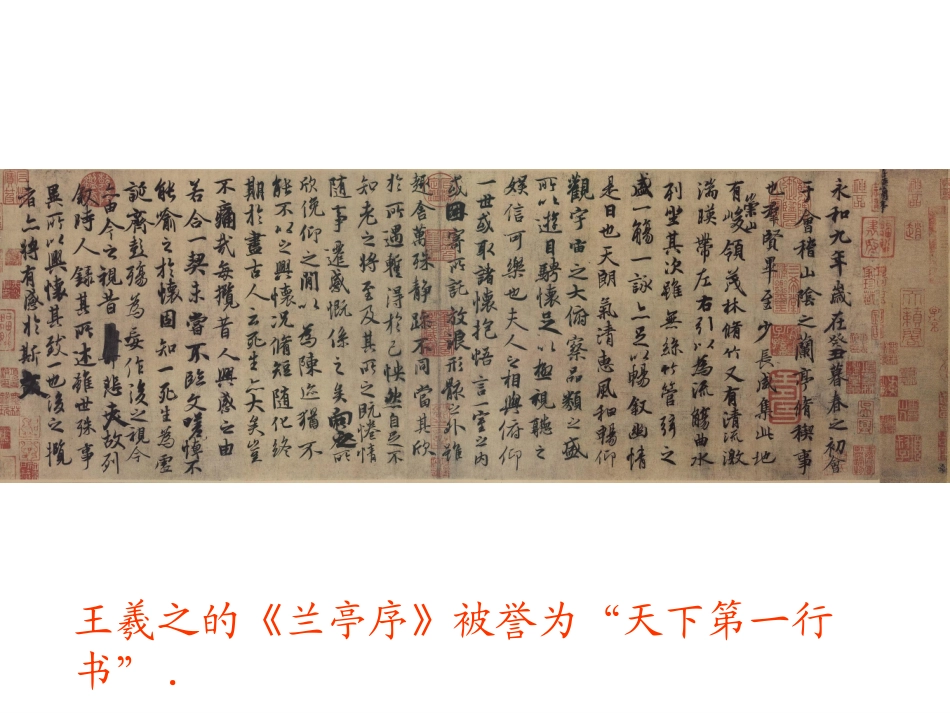 永和九年歲在癸丑暮春之初會
于會稽山陰之蘭亭脩稧事
也羣賢畢至少長咸集此地
有崇山峻領茂林脩竹又有清流激
湍暎帶左右引以為流觴曲水
列坐其次雖無絲竹管弦之
盛一觴一詠亦足以暢敘幽情
是日也天朗氣清惠風和暢仰
觀宇宙之大俯察品類之盛
所以遊目騁懷足以極視聽之
娛信可樂也夫人之相與俯仰
一世或取諸懷抱悟言一室之內
或因寄所託放浪形骸之外雖
趣舍萬殊靜躁不同當其欣
於所遇蹔得於己怏然自足不
知老之將至及其所之既惓情
隨事遷感慨係之矣向之所
欣俛仰之閒以為陳迹猶不
能不以之興懷況脩短隨化終
期於盡古人云死生亦大矣豈
不痛哉每攬昔人興感之由
若合一契未嘗不臨文嗟悼不
能喻之於懷固知一死生為虛
誕齊彭殤為妄作後之視今
亦由今之視昔悲夫故列
敘時人錄其所述雖世殊事
異所以興懷其致一也後之攬
者亦將有感於斯文
王羲之的《兰亭序》被誉为“天下第一行
书”．